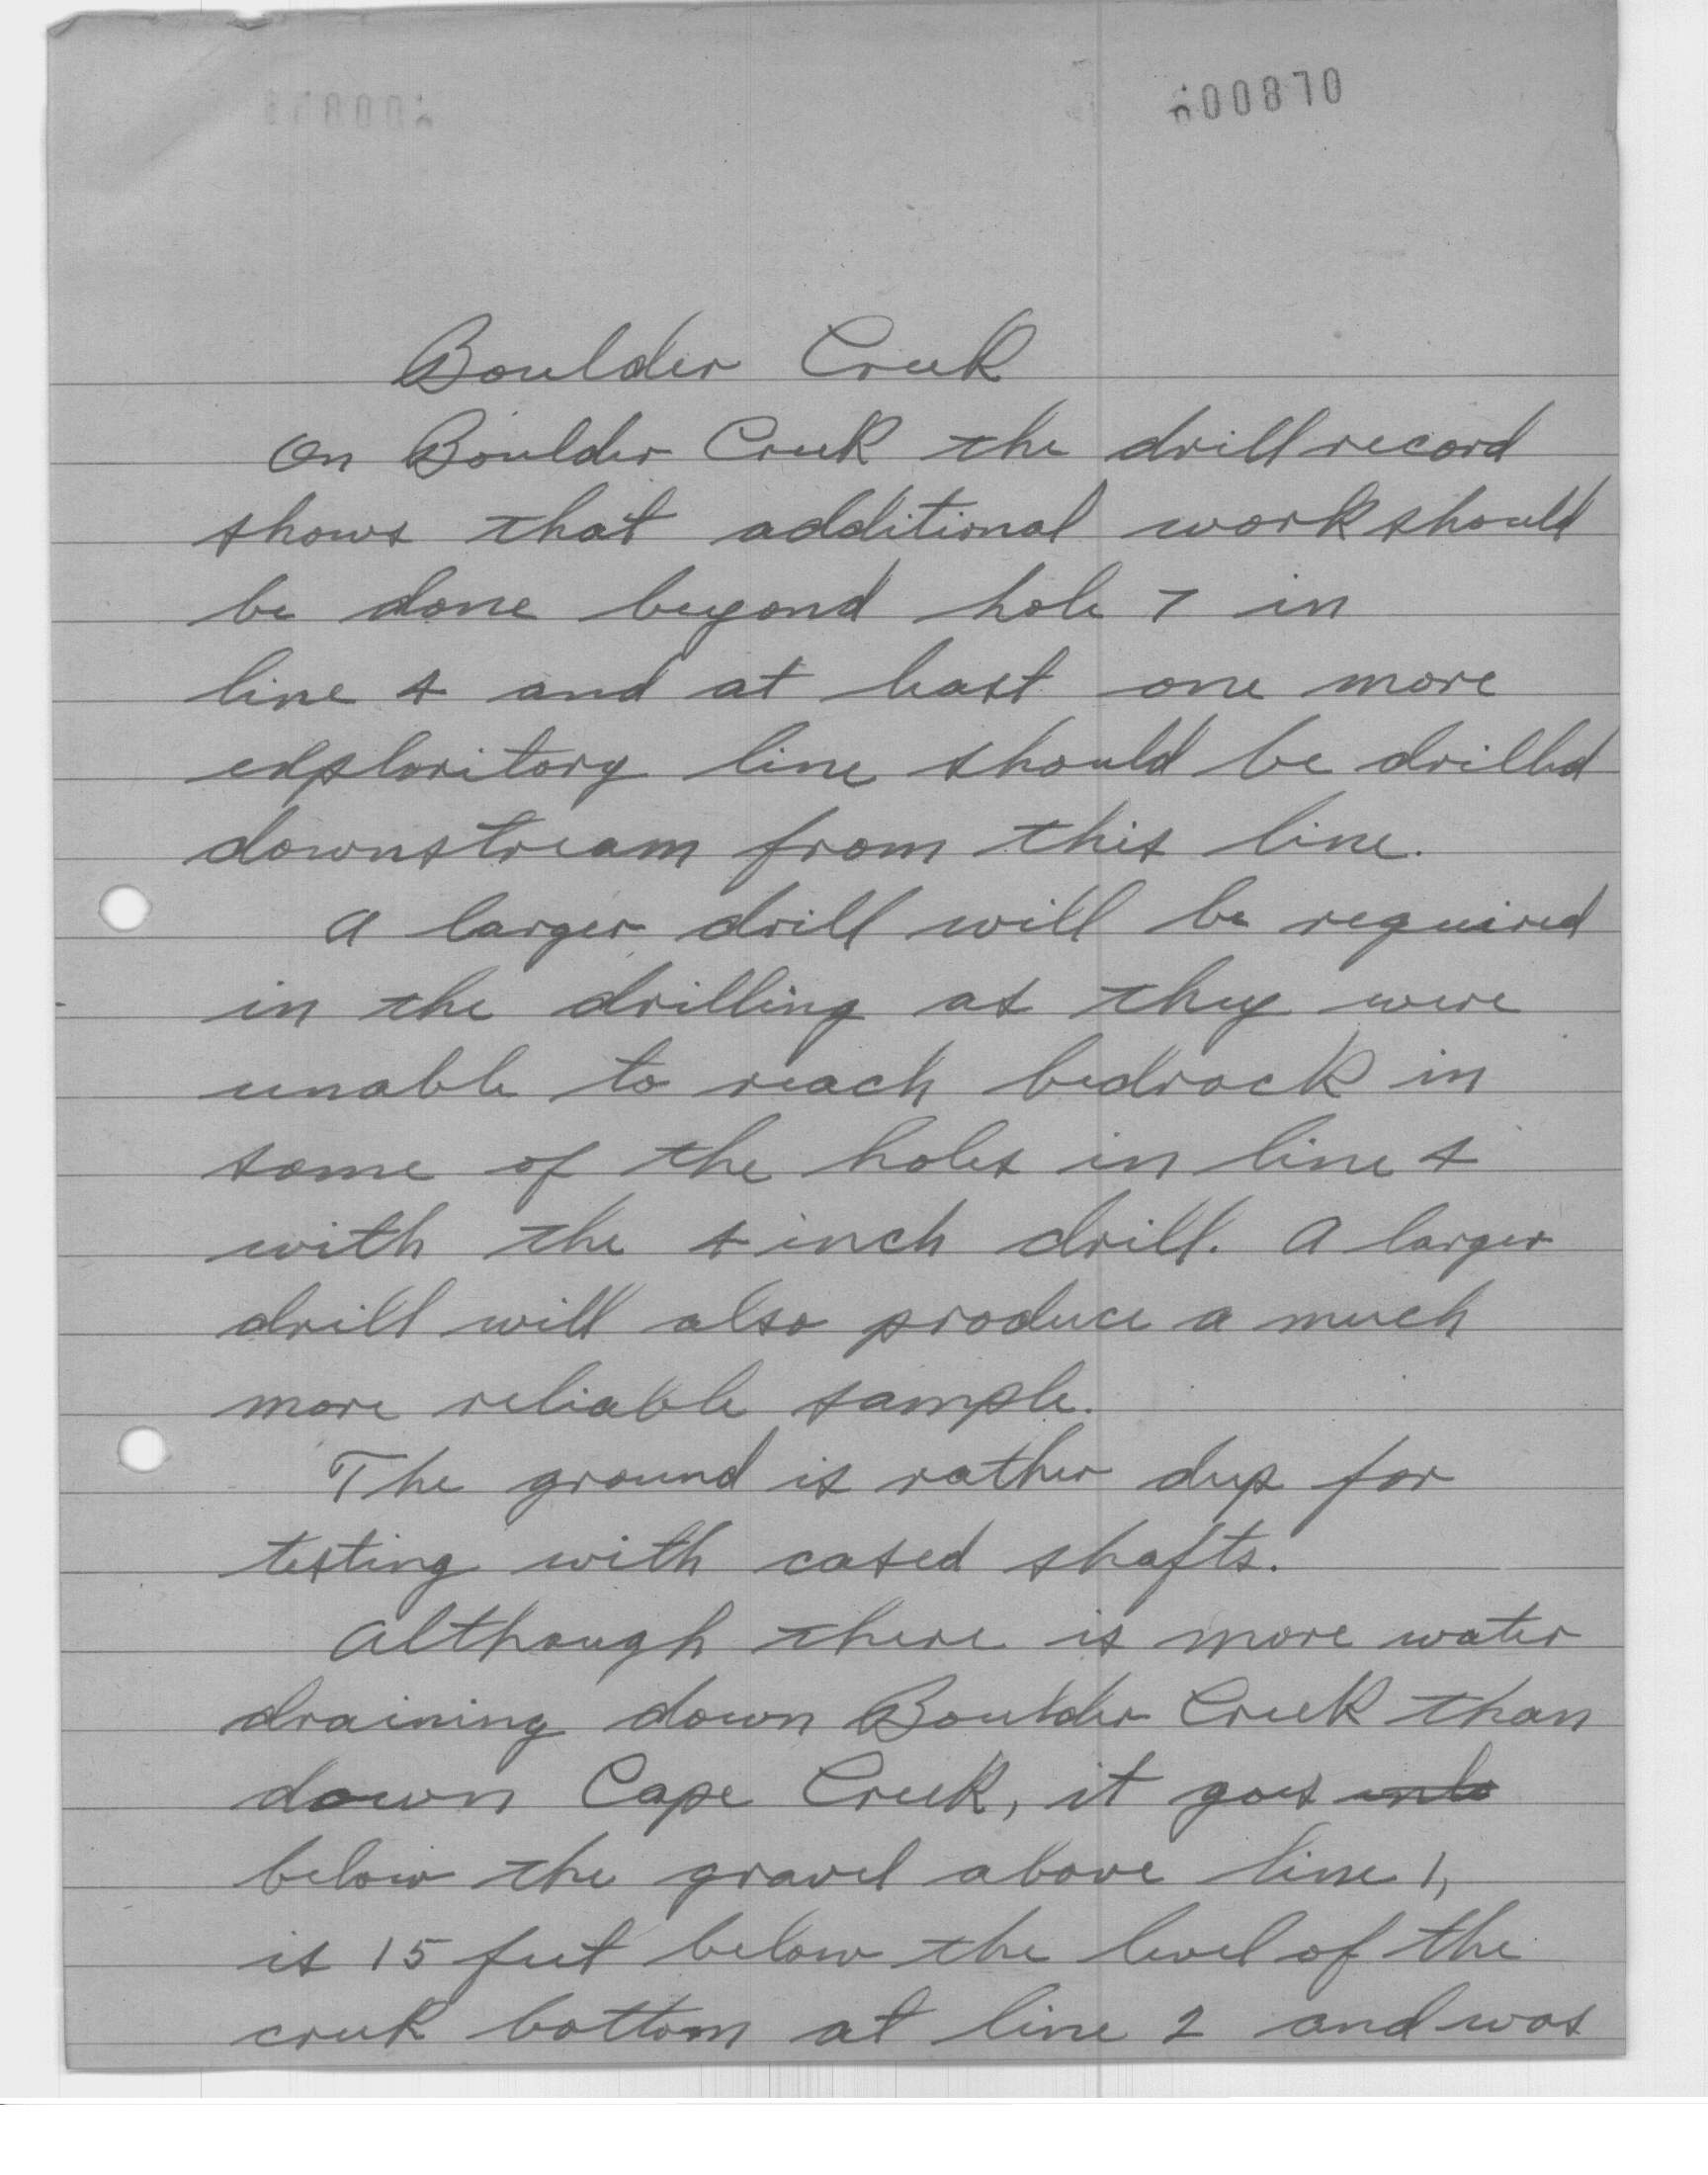 600870
Boulder Creek
On Boulder Creek the drill record
shows that additional work should
be done beyond hole 7 in
line 4 and at least one more
exploritory line should be drilled
downstream from this line.
A larger drill will be required
in the drilling as they were
unable to reach bedrock in
some of the holes in line 4
with the 4 inch drill. A larger
drill will also produce a much
more reliable sample.
The ground is rather deep for
testing with cased shafts.
Although there is more water
draining down Boulder Creek than
down Cape Creek, it goes into
below the gravel above line 1,
is 15 feet below the level of the
creek bottom at line 2 and was